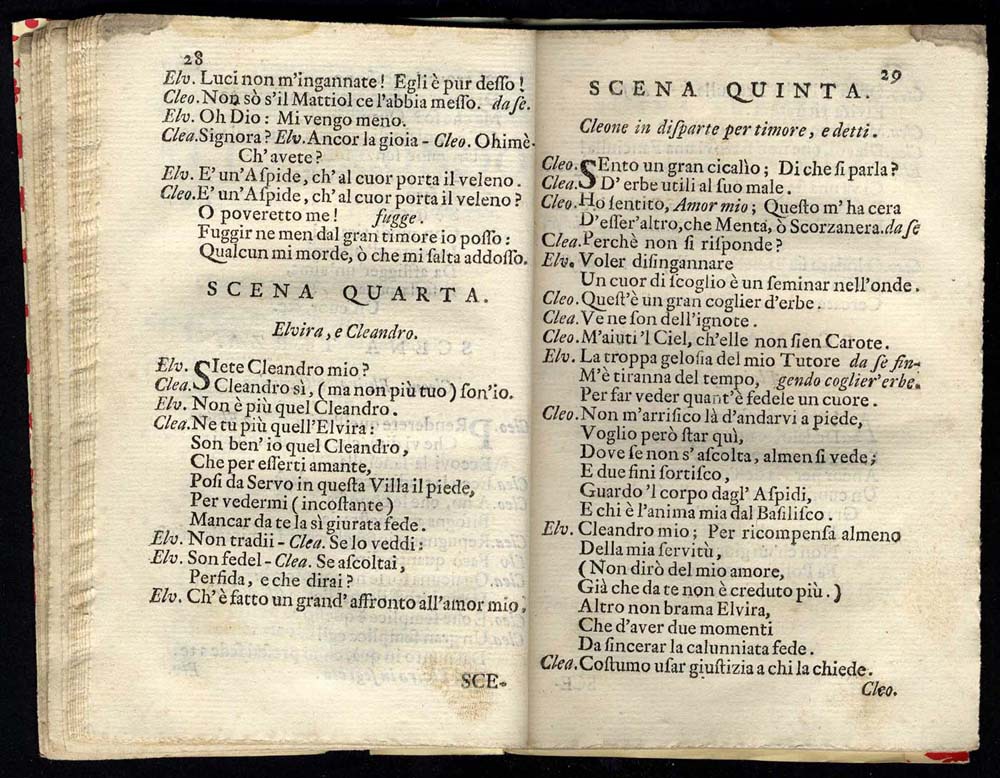 28
Elv. Luci non m'ingannate! Egli è pur deſſo!
Cleo. Non sò s'il Mattiol ce l'abbia meſſo. da ſe.
Elv. Oh Dio: Mi vengo meno.
Clea. Signora? Elv. Ancor la gioia - Cleo. Ohimè.
Ch'avete?
Elv. E' un'Aſpide, ch'al cuor porta il veleno.
Cleo. E' un'Aſpide, ch'al cuor porta il veleno?
O poveretto me! fugge.
Fuggir ne men dal gran timore io poſſo:
Qualcun mi morde, ò che mi ſalta addoſſo.
SCENA QUARTA.
Elvira, e Cleandro.
Elv. SIete Cleandro mio?
Clea. Cleandro sì, (ma non più tuo) ſon'io.
Elv. Non è più quel Cleandro.
Clea. Ne tu più quell'Elvira:
Son ben' io quel Cleandro,
Che per eſſerti amante,
Poſi da Servo in queſta Villa il piede,
Per vedermi (incoſtante)
Mancar da te la sì giurata fede.
Elv. Non tradii - Clea. Se lo veddi:
Elv. Son fedel - Clea. Se aſcoltai,
Perfida, e che dirai?
Elv. Ch' è fatto un grand' affronto all'amor mio.
SCE-
29
SCENA QUINTA.
Cleone in diſparte per timore, e detti.
Cleo. SEnto un gran cicalìo; Di che ſi parla?
Clea. D' erbe utili al ſuo male.
Cleo. Ho ſentito, Amor mio; Queſto m' ha cera
D'eſſer'altro, che Menta, ò Scorzanera. da ſe
Clea. Perchè non ſi riſponde?
Elv. Voler diſingannare
Un cuor di ſcoglio è un ſeminar nell'onde.
Cleo. Queſt'è un gran coglier d'erbe.
Clea. Ve ne ſon dell'ignote.
Cleo. M'aiuti 'l Ciel, ch'elle non ſien Carote.
Elv. La troppa geloſia del mio Tutore da ſe fin-
M'è tiranna del tempo, gendo coglier'erbe.
Per far veder quant'è fedele un cuore.
Cleo. Non m'arriſico là d'andarvi a piede,
Voglio però ſtar quì,
Dove ſe non s' aſcolta, almen ſi vede;
E due fini ſortiſco,
Guardo 'l corpo dagl' Aſpidi,
E chi è l'anima mia dal Baſiliſco.
Elv. Cleandro mio; Per ricompenſa almeno
Della mia ſervitù,
(Non dirò del mio amore,
Già che da te non è creduto più.)
Altro non brama Elvira,
Che d'aver due momenti
Da ſincerar la calunniata fede.
Clea. Coſtumo uſar giuſtizia a chi la chiede.
Cleo.